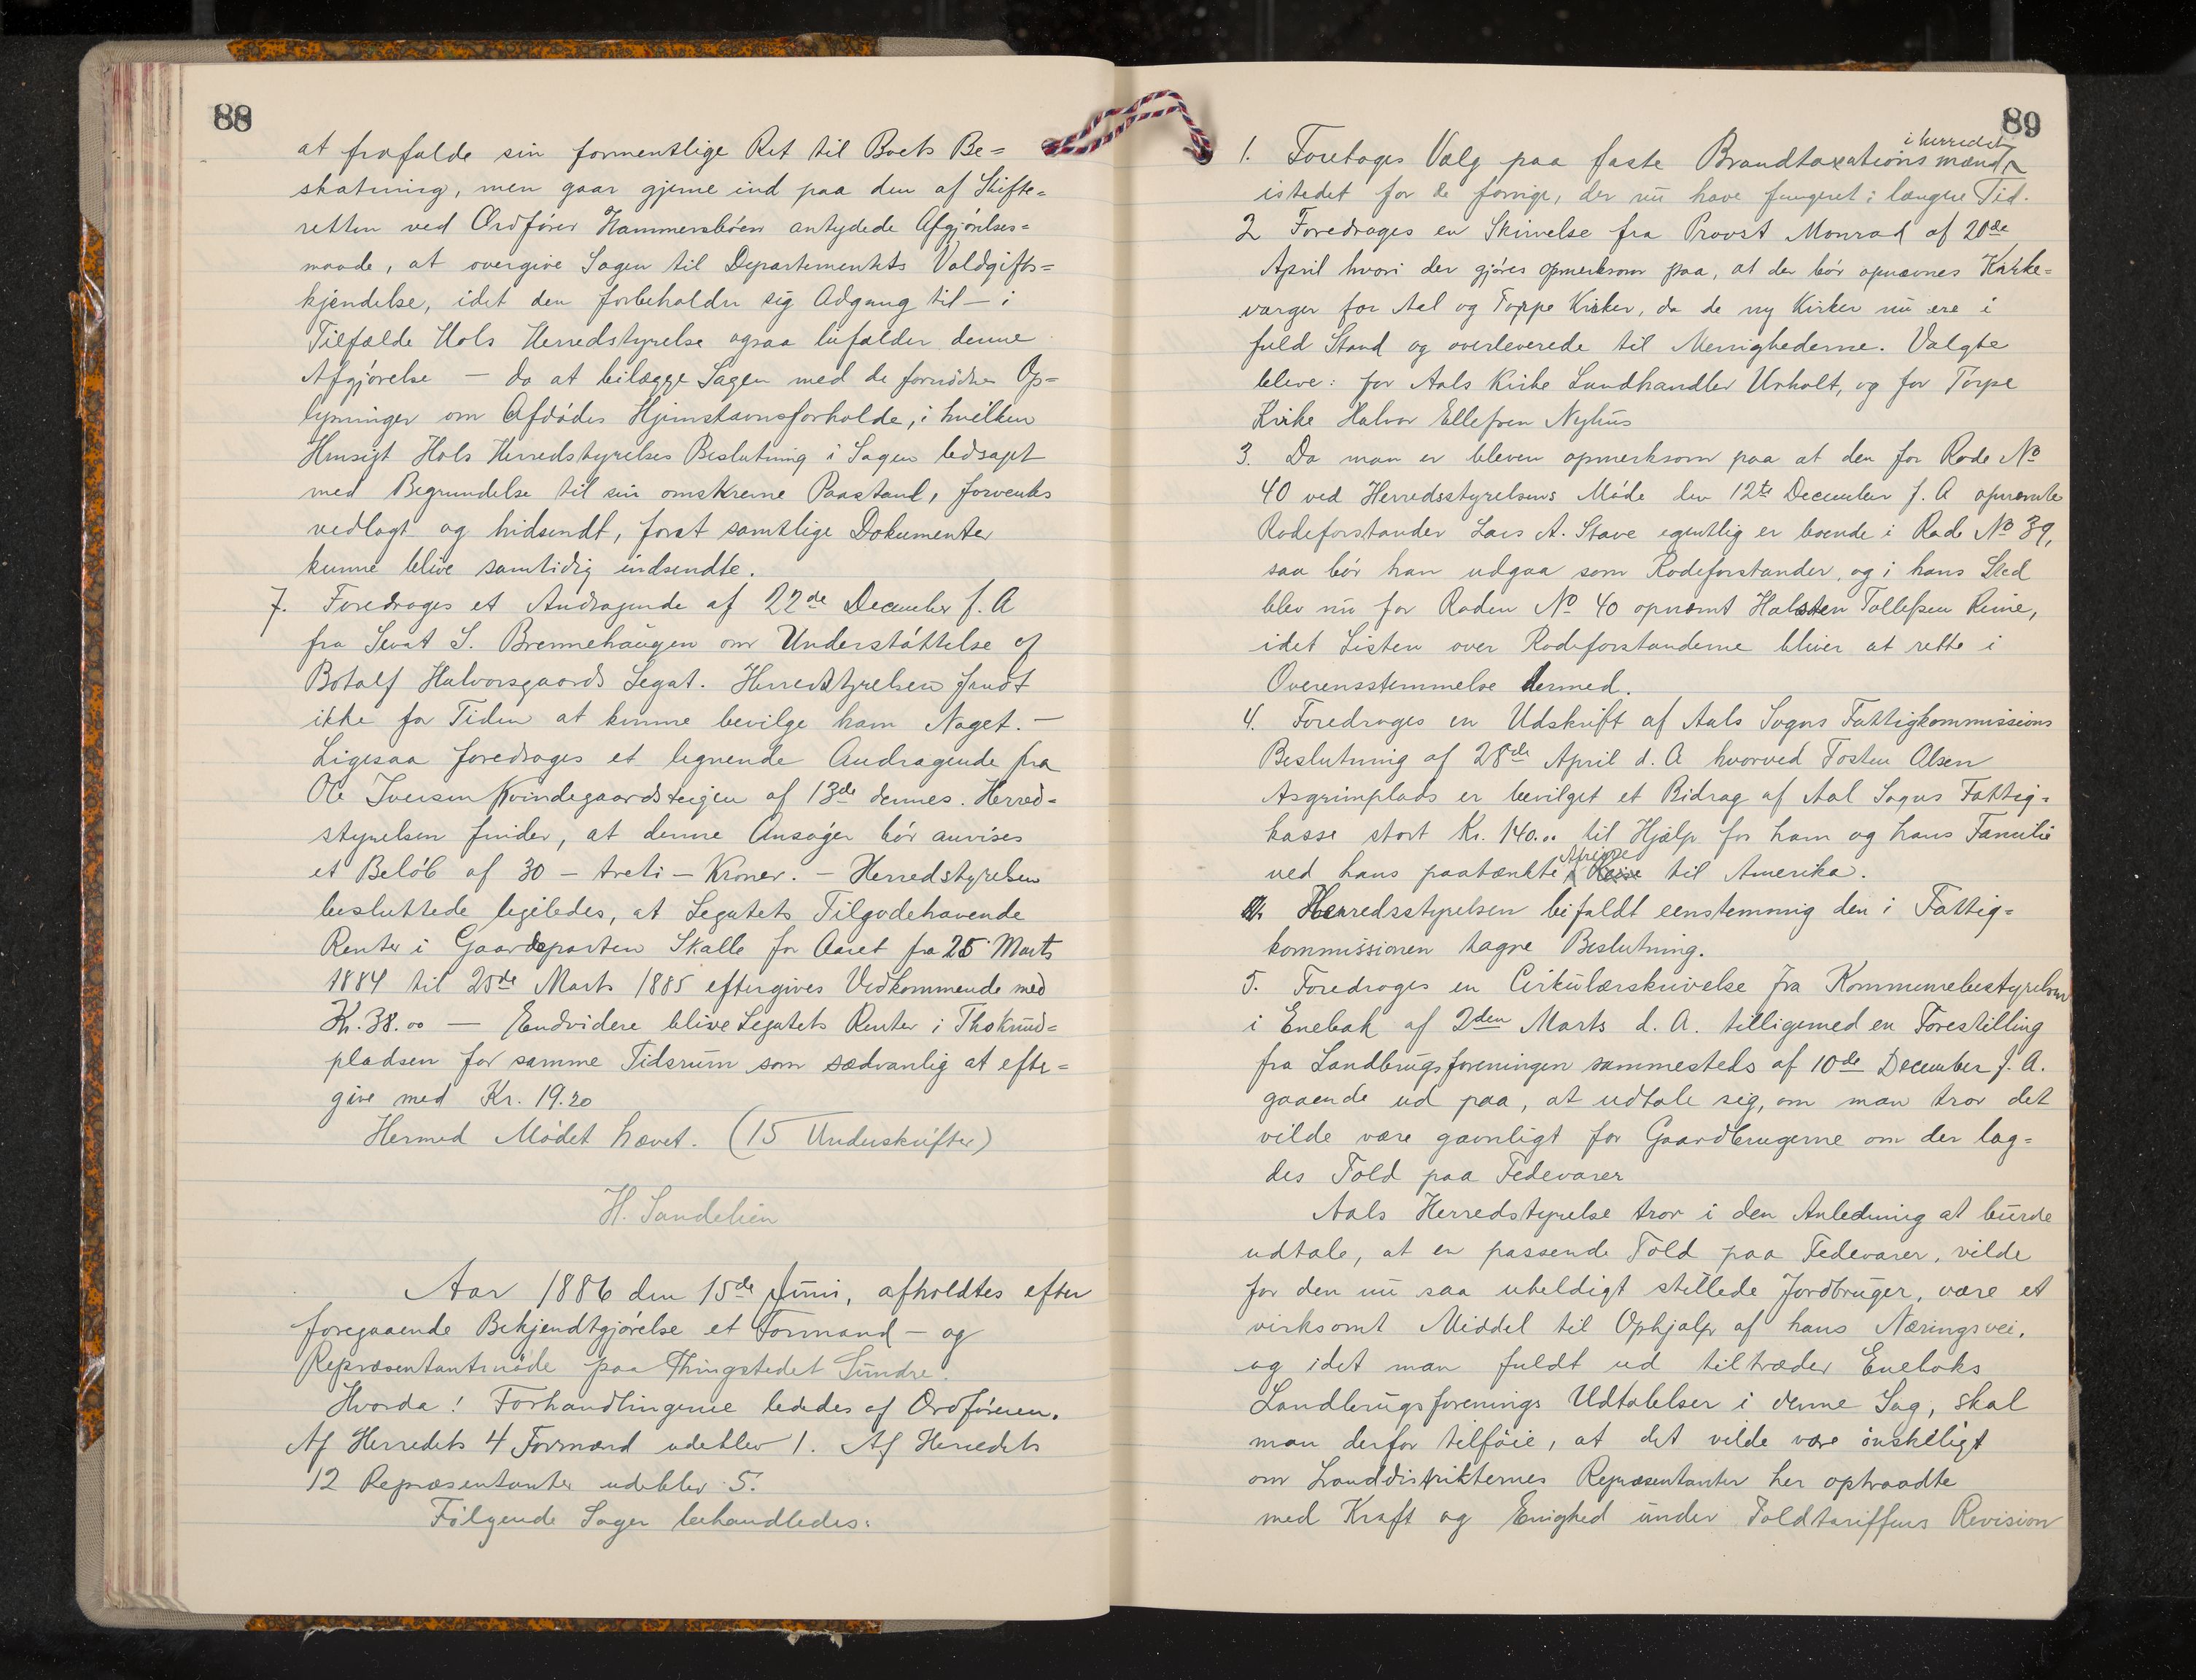 88
at frafalde sin formentlige Ret til Boets Be=
skatning, men gaar gjerne ind paa den af Skifte=
retten ved Ordfører Hammersbøen antydede Afgjørelses=
maade, at overgive Sagen til Departementets Voldgifts=
kjendelse, idet den forbeholder sig Adgang til – i
Tilfælde Hols Herredstyrelse ogsaa bifalder denne
Afgjørelse – da at bilægge Sagen med de fornødne Op=
lysninger om Afdødes Hjemstavnsforholde, i hvilken
Hensigt Hols Herredstyrelses Beslutning i Sagen ledsaget
med Begrundelse til sin omskrevne Paastand, forventes
vedlagt og hidsendt, forat samtlige Dokumenter
kunne blive samtidig indsendte.
7. Foredroges et Andragende af 22de December f. A
fra Sevat S. Brennehaugen om Understøttelse af
Botolf Halvorsgaards Legat. Herredstyrelsen fandt
ikke for Tiden at kunne bevilge ham Noget. –
Ligesaa foredroges et lignende Andragende fra
Ole Iversen Kvindegaardsteigen af 13de dennes. Herred=
styrelsen finder, at denne Ansøger bør anvises
et Beløb af 30 – treti – Kroner. – Herredstyrelsen
besluttede ligeledes, at Legatets Tilgodehavende
Renter i Gaardsparten Skalle for Aaret fra 25 Marts
1884 til 25de Marts 1885 eftergives Vedkommende med
Kr. 38.00 – Endvidere blive Legatets Renter i Thoknud=
pladsen for samme Tidsrum som sædvanlig at efter=
give med Kr. 19.20
Hermed Mødet hævet. (15 Underskrifter)
H. Sandelien
Aar 1886 den 15de Juni, afholdtes efter
foregaaende Bekjendtgjørelse et Formand – og
Repræsentantmøde paa Thingstedet Sundre.
Hvorda! Forhandlingerne lededes af Ordføreren.
Af Herredets 4 Formænd udeblev 1. Af Herredets
12 Repræsentanter udeblev 5.
Følgende Sager behandledes:
89
i herredet
1. Foretoges Valg paa faste Brandtaxationsmænd
istedet for de forrige, der nu have fungeret i længere Tid.
2 Foredroges en Skrivelse fra Provst Monrad af 20de
April hvori der gjøres opmerksom paa, at der bør opnævnes Kirke=
værger for Aal og Torpe Kirker, da de ny Kirker nu ere i
fuld Stand og overleverede til Menighederne. Valgte
bleve: for Aals Kirke Landhandler Urholt, og for Torpe
Kirke Halvor Ellefsen Nyhus
3. Da man er bleven opmerksom paa at den for Rode No
40 ved Herredsstyrelsens Møde den 12te December f. A opnævnte
Rodeforstander Lars A. Stave egentlig er boende i Rode No 39,
saa bør han udgaa som Rodeforstander, og i hans Sted
blev nu for Roden No 40 opnævnt Halsten Tollefsen Reine,
idet Listen over Rodeforstanderne bliver at rette i
Overensstemmelse dermed.
4. Foredroges en Udskrift af Aals Sogns Fattigkommissions
Beslutning af 28de April d. A hvorved Tosten Olsen
Asgrimplads er bevilget et Bidrag af Aal Sogns Fattig=
kasse stort Kr. 140.00 til Hjælp for ham og hans Familie
Afreise
ved hans paatænkte Reise til Amerika.
Herredsstyrelsen bifaldt eenstemmig den i Fattig=
kommissionen tagne Beslutning.
5. Foredroges en Cirkulærskrivelse fra Kommunebestyrelsen
i Enebak af 2den Marts d. A. tilligemed en Forestilling
fra Landbrugsforeningen sammesteds af 10de December f. A.
gaaende ud paa, at udtale sig, om man tror det
vilde være gavnligt for Gaardbrugerne om der lag=
des Told paa Fedevarer
Aals Herredstyrelse tror i den Anledning at burde
udtale, at en passende Told paa Fedevarer, vilde
for den nu saa uheldigt stillede Jordbruger, være et
virksomt Middel til Ophjælp af hans Næringsvei.
og idet man fuldt ud tiltræder Enebaks
Landbrugsforenings Udtalelser i denne Sag, skal
man derfor tilføie, at det vilde være ønskeligt
om Landdistrikternes Repræsentanter her optraadte
med Kraft og Enighed under Toldtariffens Revision